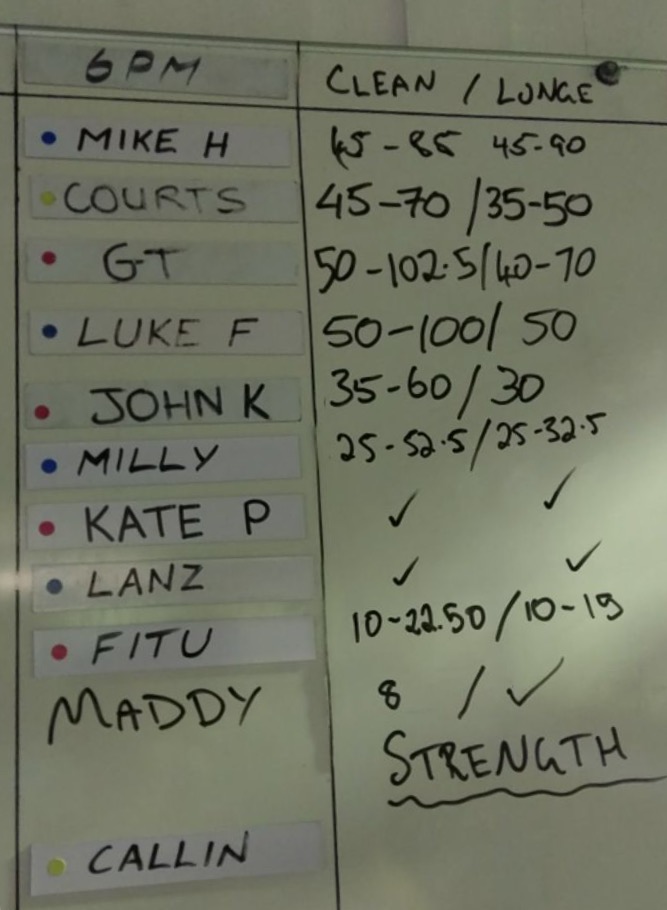 6PM CLEAN / LUNGE
MIKE H 45-85 45-90
COURTS 45-70 / 35-50
GT 50-102.5 / 40-70
LUKE F 50-100 / 50
JOHN K 35-60 / 30
MILLY 25-52.5 / 25-32.5
KATE P ✓ ✓
LANZ ✓ ✓
FITU 10-22.50 / 10-15
MADDY 8 / ✓
STRENGTH
CALLIN